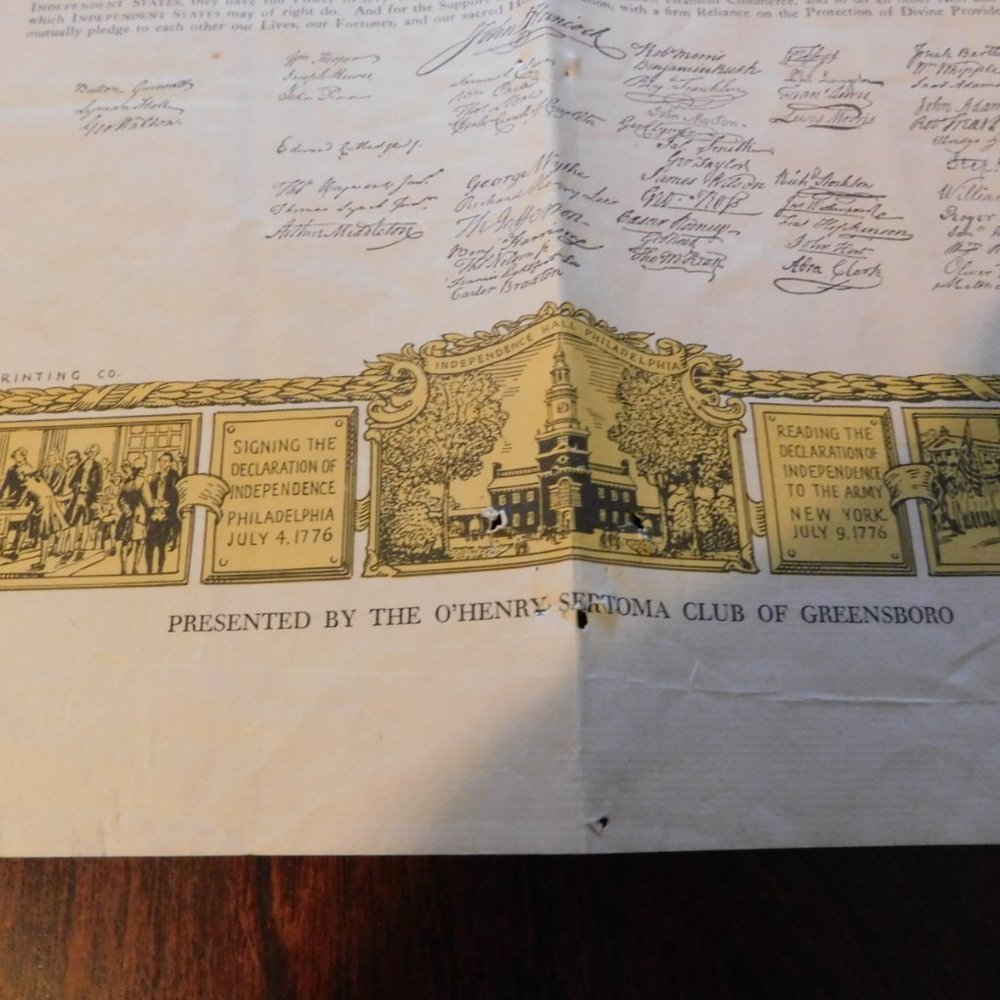 INDEPENDENT STATES, they have full Power to
establish Commerce, and to do all other
which INDEPENDENT STATES may of right do. And for the Support
with a firm Reliance on the Protection of Divine
mutually pledge to each other our Lives, our Fortunes, and our sacred
John Hancock
Button Gwinnett
Lyman Hall
Geo Walton.
Wm Hooper
Joseph Hewes
John Penn
Edward Rutledge
Thos Heyward Junr.
Thomas Lynch Junr.
Arthur Middleton
Samuel Chase
Wm Paca
Thos Stone
Charles Carroll of Carrollton
George Wythe
Richard Henry Lee
Th Jefferson
Benj Harrison
Thos Nelson jr
Francis Lightfoot Lee
Carter Braxton
Robt Morris
Benjamin Rush
Benja Franklin
John Morton
Geo Clymer
Jas Smith
Geo Taylor
James Wilson
Geo Ross
Caesar Rodney
Geo Read
Tho M:Kean
Frans Lewis
Lewis Morris
Richd Stockton
Jno Witherspoon
Fras Hopkinson
John Hart
Abra Clark
Josiah
Wm Whipple
John Adams
RINTING CO.
INDEPENDENCE HALL, PHILADELPHIA
SIGNING THE
DECLARATION OF
INDEPENDENCE
PHILADELPHIA
JULY 4, 1776
READING THE
DECLARATION OF
INDEPENDENCE
TO THE ARMY
NEW YORK
JULY 9, 1776
PRESENTED BY THE O'HENRY SERTOMA CLUB OF GREENSBORO